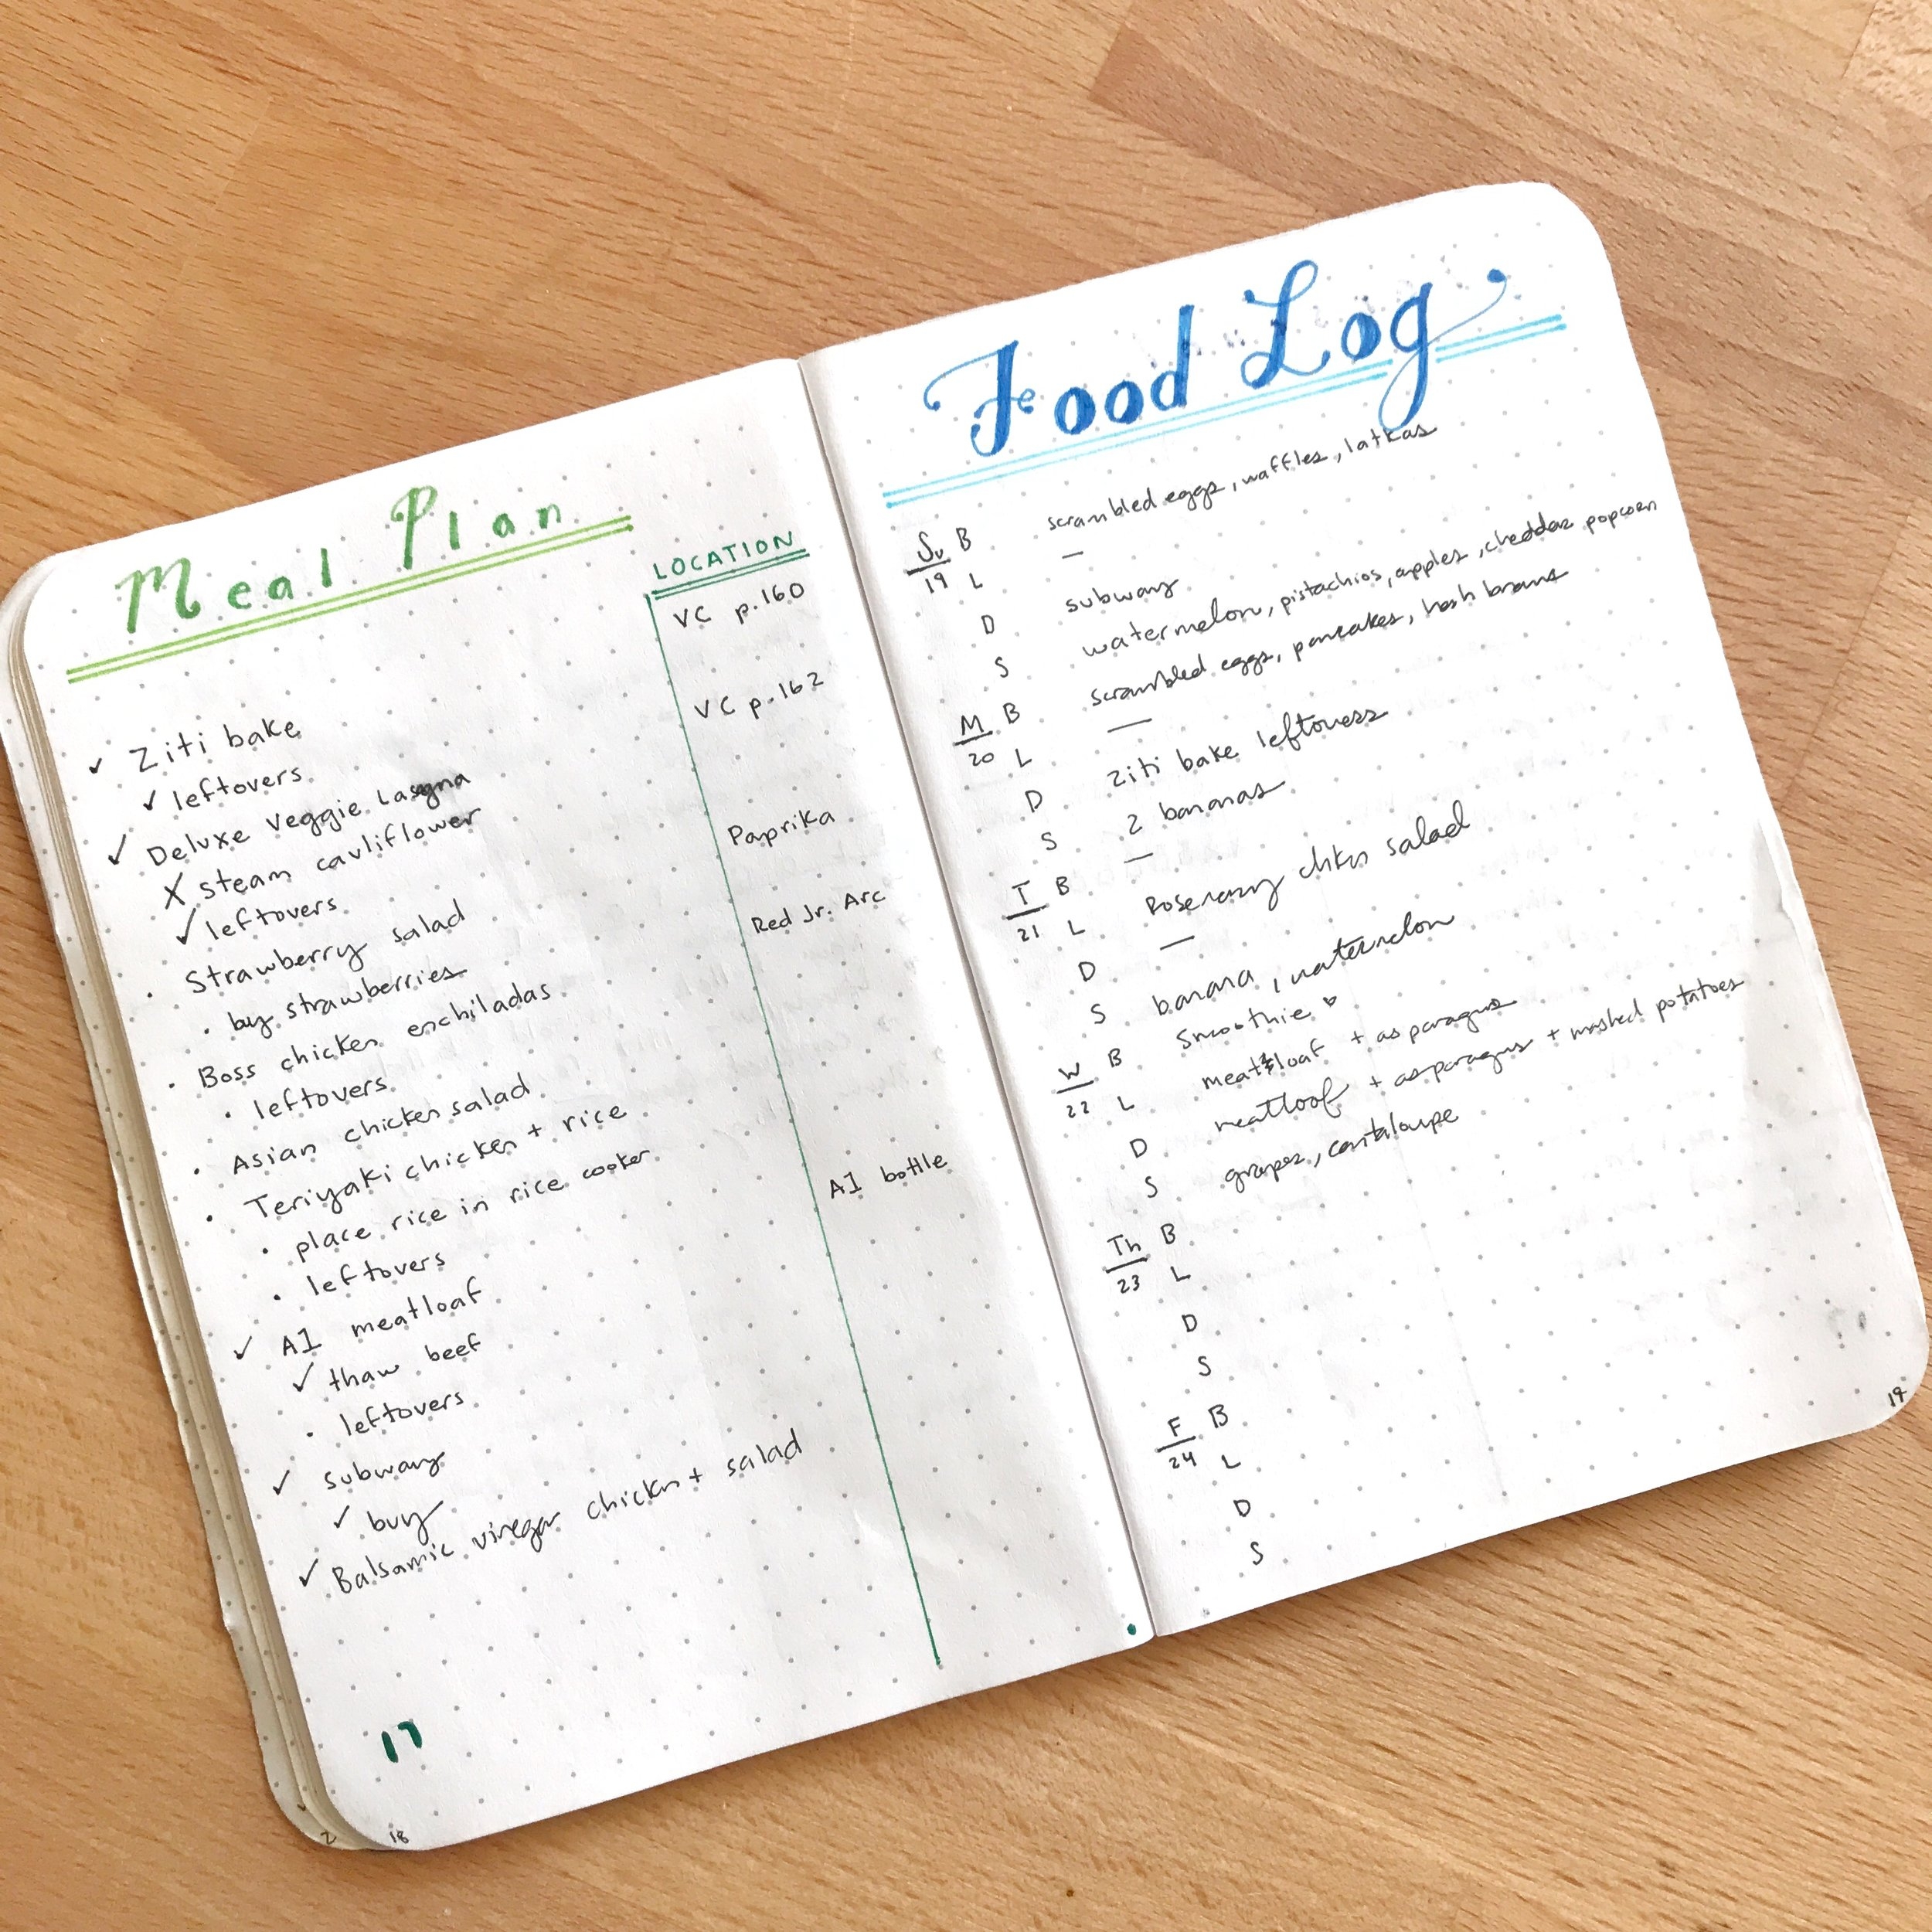 Meal Plan
LOCATION
✓ Ziti bake
VC p.160
✓ leftovers
✓ Deluxe Veggie Lasagna
VC p.162
X steam cauliflower
✓ leftovers
· Strawberry salad
Paprika
· by strawberries
· Boss chicken enchiladas
Red Jr. Arc
· leftovers
· Asian chicken salad
· Teriyaki chicken + rice
· place rice in rice cooker
· leftovers
✓ A1 meatloaf
A1 bottle
✓ thaw beef
· leftovers
✓ subway
✓ buy
✓ Balsamic vinegar chicken + salad
17
18
2
Food Log
Su B scrambled eggs, waffles, latkas
19 L —
D subway
S watermelon, pistachios, apples, cheddar popcorn
M B scrambled eggs, pancakes, hash browns
20 L —
D Ziti bake leftovers
S 2 bananas
T B —
21 L Rosemary chkn salad
D —
S banana, watermelon
W B Smoothie
22 L meatloaf + asparagus
D meatloaf + asparagus + mashed potatoes
S grapes, cantaloupe
Th B
23 L
D
S
F B
24 L
D
S
19